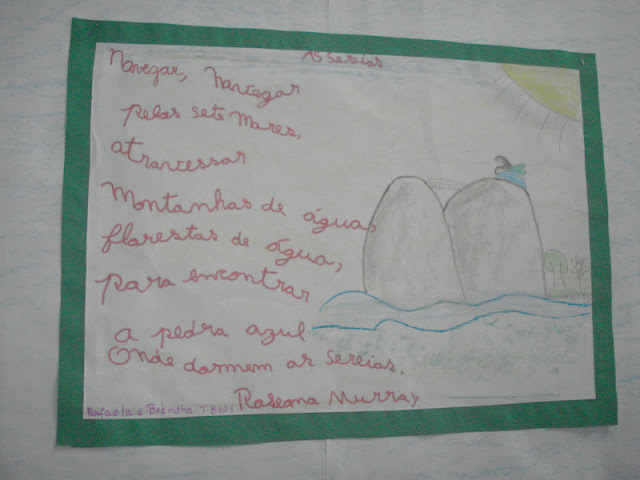 As Sereias
Navegar, navegar
pelos sete mares,
atravessar
Montanhas de água,
florestas de água,
para encontrar
a pedra azul
Onde dormem as sereias.
Roseana Murray
Rafaela e Brenda T-840